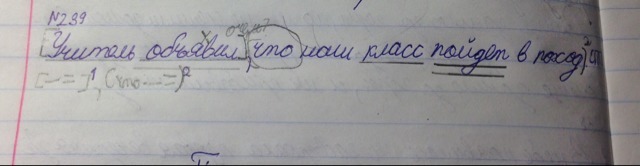 №239
[Учитель объявил, (что наш класс пойдет в поход)².
[— =]¹, (что — =)²